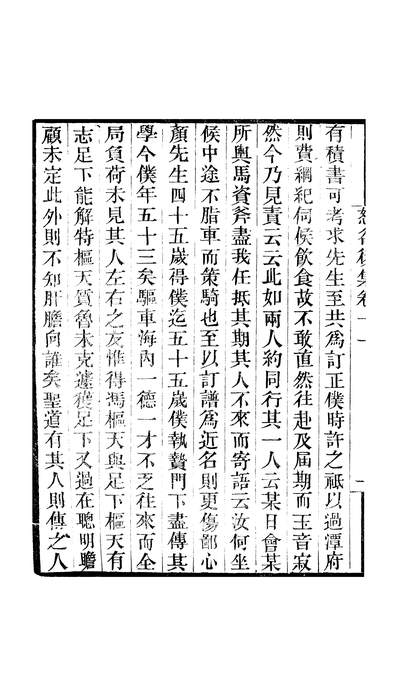 有積書可考求先生至共爲訂正僕時許之祗以過潭府
則費綱紀伺候飲食故不敢直然往赴及届期而玉音寂
然今乃見責云云此如兩人約同行其一人云某日會某
所輿馬資斧盡我任抵其期其人不來而寄語云汝何坐
候中途不脂車而策騎也至以訂譜爲近名則更傷鄙心
顏先生四十五歲得僕迄五十五歲僕執贄門下盡傳其
學今僕年五十三矣驅車海內一德一才不乏往來而全
局負荷未見其人左右之友惟得馮樞天與足下樞天有
志足下能解特樞天質魯未克遽穫足下又過在聰明瞻
顧未定此外則不知肝膽向誰矣聖道有其人則傳之人